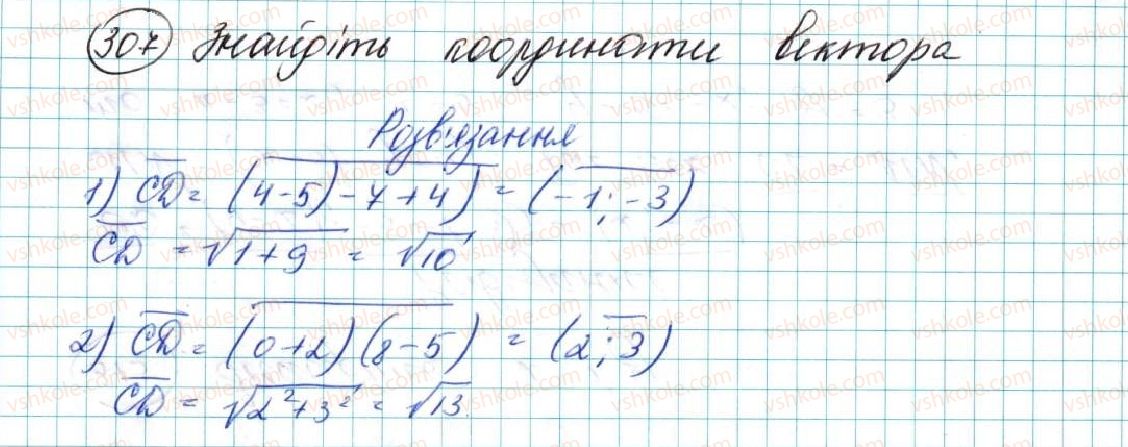 307 Знайдіть координати вектора
Розв'язання
1) CD = (4-5)-7+4) = (-1; -3)
CD = √1+9 = √10
2) CD = (0+2)(8-5) = (2; 3)
CD = √2²+3² = √13.